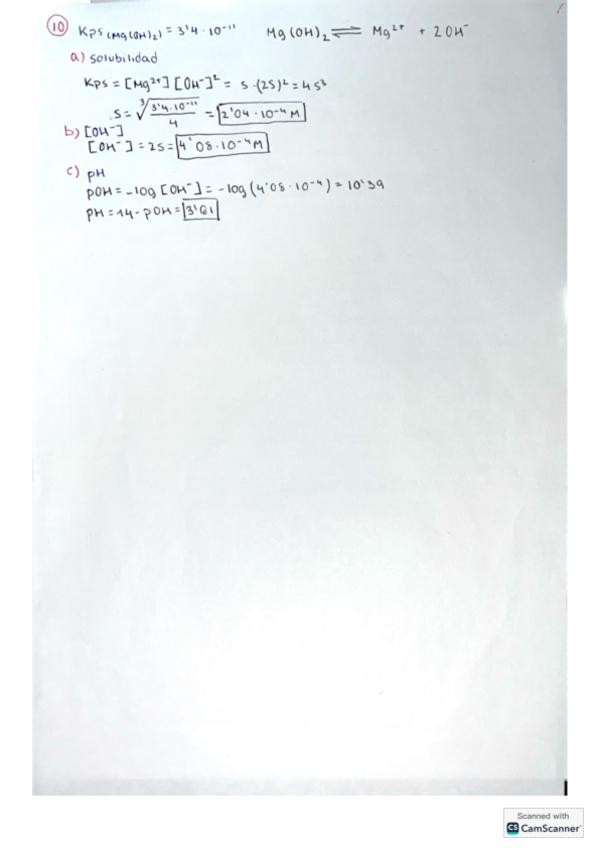 10 Kps (Mg(OH)2) = 3'4 · 10⁻¹¹ Mg(OH)₂ ⇌ Mg²⁺ + 2OH⁻
a) solubilidad
Kps = [Mg²⁺][OH⁻]² = s · (2s)² = 4s³
s = ∛(3'4·10⁻¹¹/4) = 2'04 · 10⁻⁴ M
b) [OH⁻]
[OH⁻] = 2s = 4'08 · 10⁻⁴ M
c) pH
pOH = -log [OH⁻] = -log (4'08 · 10⁻⁴) = 10'39
pH = 14 - pOH = 3'61
Scanned with
CS CamScanner